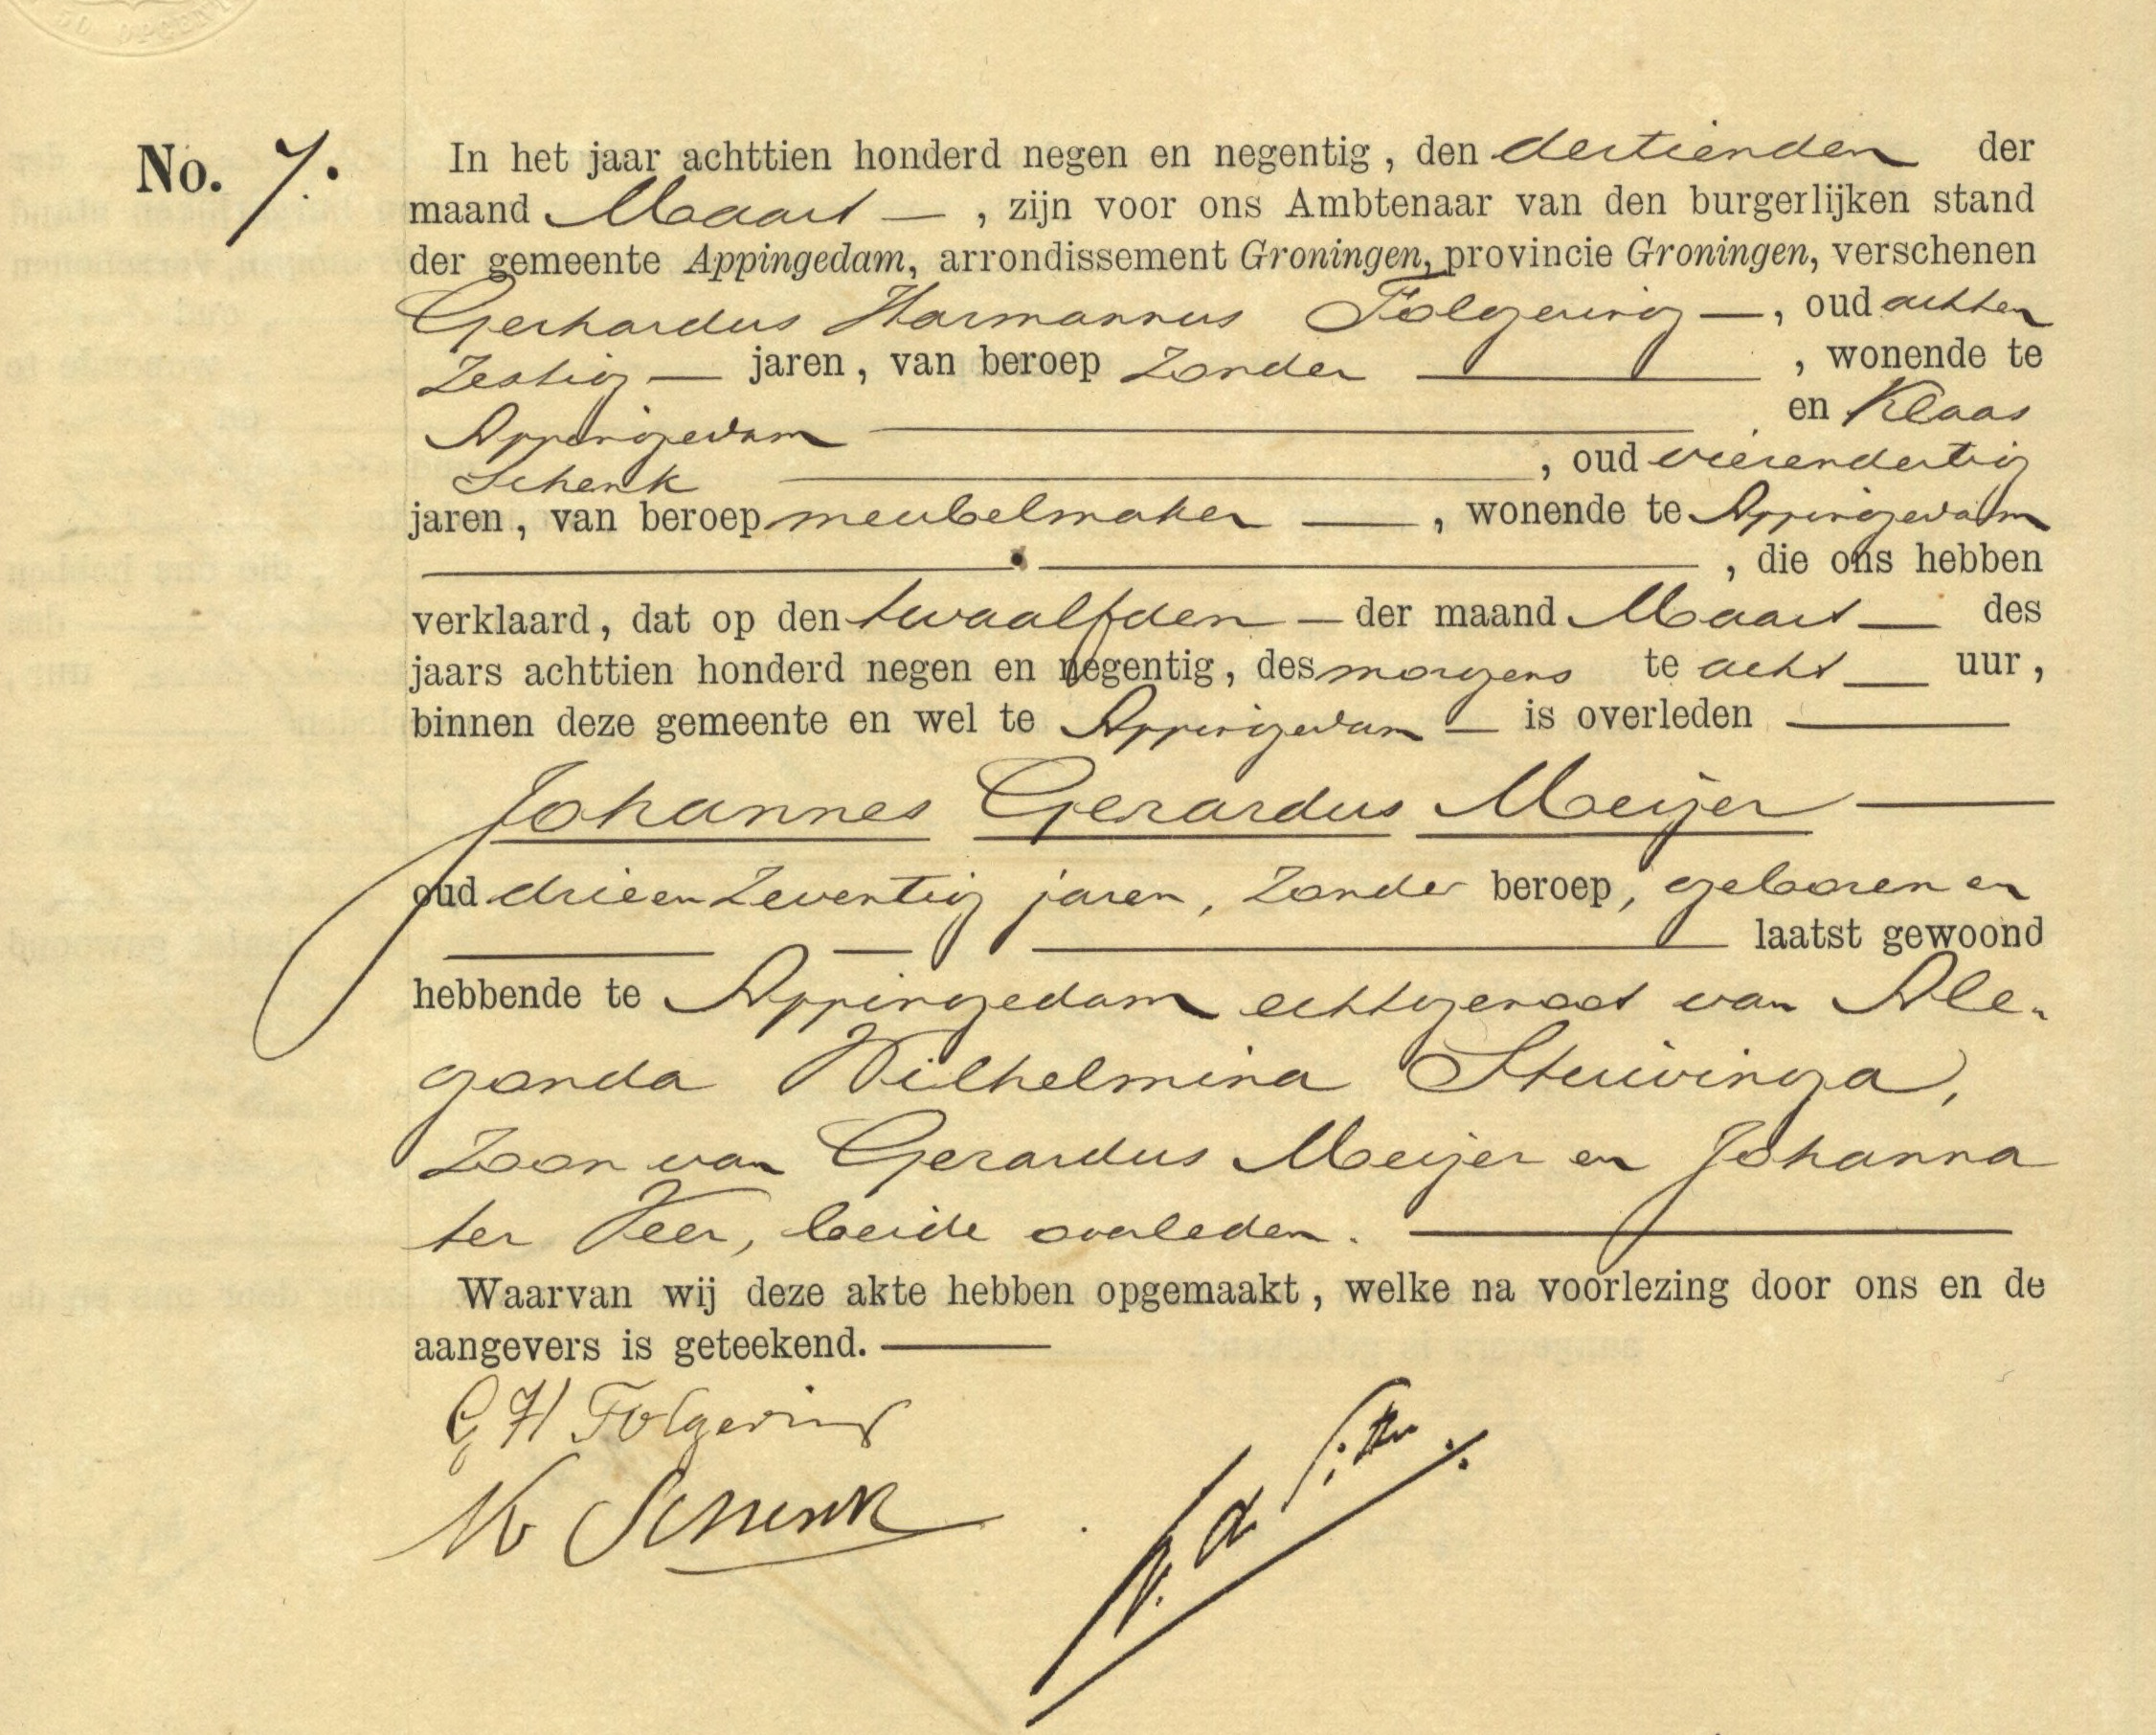 No. 7.
In het jaar achttien honderd negen en negentig, den dertienden der
maand Maart —, zijn voor ons Ambtenaar van den burgerlijken stand
der gemeente Appingedam, arrondissement Groningen, provincie Groningen, verschenen
Gerhardus Harmannus Folgering —, oud achten
zestig — jaren, van beroep zonder —, wonende te
Appingedam — en Klaas
Schenk —, oud vierendertig
jaren, van beroep meubelmaker —, wonende te Appingedam
—, die ons hebben
verklaard, dat op den twaalfden — der maand Maart — des
jaars achttien honderd negen en negentig, des morgens te acht — uur,
binnen deze gemeente en wel te Appingedam — is overleden —
Johannes Gerardus Meijer —
oud drieenzeventig jaren, zonder beroep, geboren en
— laatst gewoond
hebbende te Appingedam echtgenoot van Ale-
gonda Wilhelmina Stuivinga,
zoon van Gerardus Meijer en Johanna
ter Veer, beide overleden. —
Waarvan wij deze akte hebben opgemaakt, welke na voorlezing door ons en de
aangevers is geteekend. —
G H Folgering
K Schenk